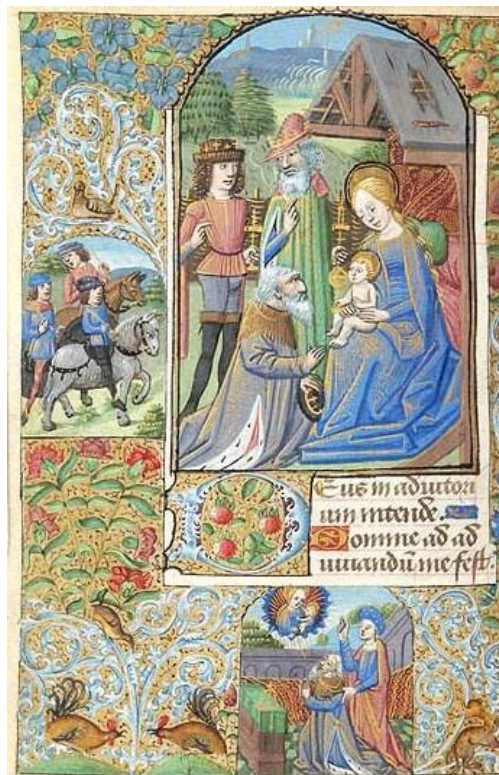 Deus in adiutori
um intende.
Domine ad ad
iuuandū me fest